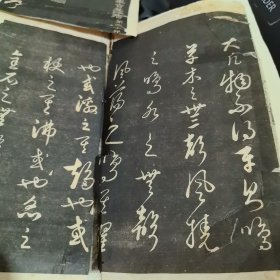 大凡物不得平則鳴
草木之無聲風撓
之鳴水之無聲
風蕩之鳴其躍
也或激之其趨也或
梗之其沸也或炙之
金石之無